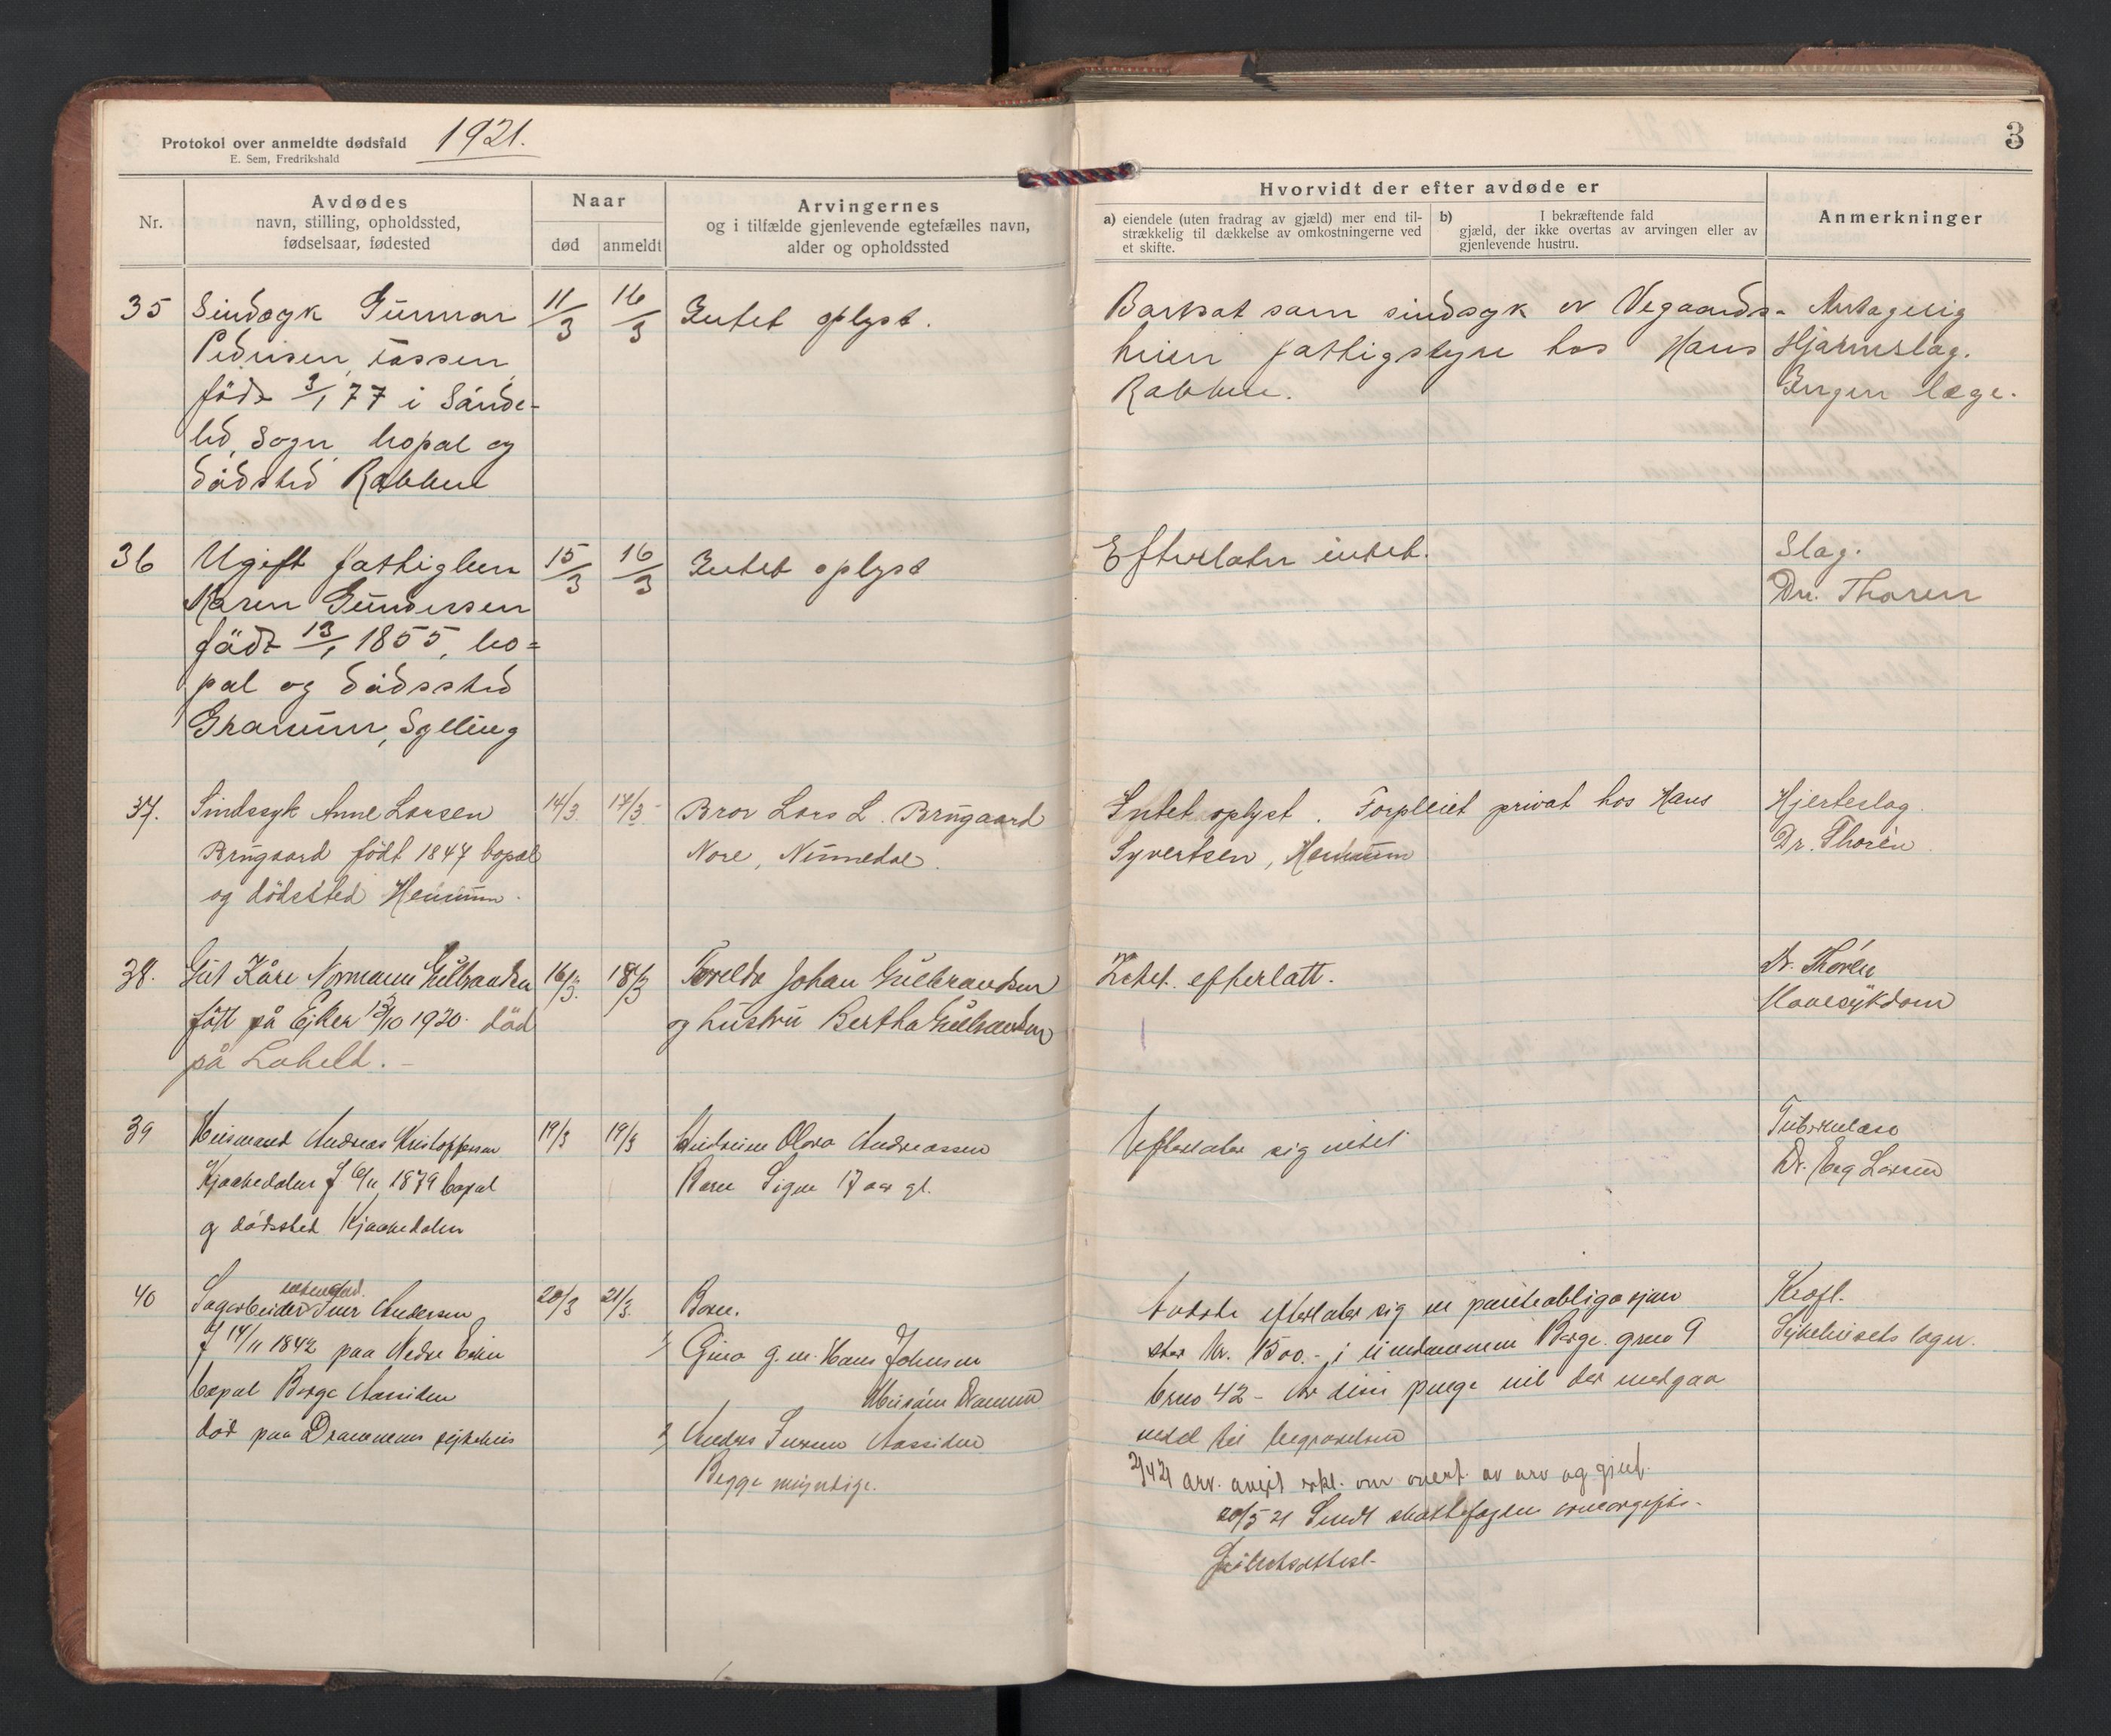 Protokol over anmeldte dødsfald 1921.
E. Sem, Fredrikshald
3
Nr.
Avdødes
navn, stilling, opholdssted,
fødselsaar, fødested
Naar
død
anmeldt
Arvingernes
og i tilfælde gjenlevende egtefælles navn,
alder og opholdssted
Hvorvidt der efter avdøde er
a) eiendele (uten fradrag av gjæld) mer end til-
strækkelig til dækkelse av omkostningerne ved
et skifte.
b) I bekræftende fald
gjæld, der ikke overtas av arvingen eller av
gjenlevende hustru.
Anmerkninger
35
Sindssyk Gunnar
Pedersen
född 3/1 77 i Sánde-
led, Sogn, bopæl og
dödsted Rabben
11/3
16/3
Intet oplyst.
Bortsat som sindsyk av Vegaards-
heien fattigstyre hos Hans
Rabben.
Antagelig
Hjerneslag.
Ingen læge.
36
Ugift fattiglem
Karen Gundersen
född 13/1 1855, bo=
pæl og dödssted
Granum, Sylling
15/3
16/3
Intet oplyst
Efterlater intet.
Slag.
Dr. Thoren
37.
Sindssyk Anne Larsen
Brugaard født 1847 bopæl
og dödssted Hennum.
14/3.
17/3
Bror Lars L. Brugaard
Nore, Numedal.
Intet oplyst. Forpleiet privat hos Hans
Syvertsen, Hennum
Hjerteslag.
Dr. Thorén.
38.
Gut Kåre Normann Gulbrandsen
fött på Eiker 13/10 1920. död
på Loheld.
16/3.
18/3
Foreldre Johan Gulbrandsen
og hustru Bertha Gulbrandsen
Intet efterlatt.
Dr. Thorén
Mavesykdom
39
Husmand Andreas Kristoffersen
Kjøkkedalen f 6/11 1879 bopæl
og dödssted
19/3
19/3
Olava Andreassen
Barn Signe 17 aar gl.
Efterlater sig intet
Tuberkulose
Dr. Larsen
40
Sagarbeider Iver Andersen
f 14/11 1842 paa Nedre Eiker
bopæl Borge Aassiden
död paa Drammens sykehus
20/3
21/3.
Barn.
1/ Gina g.m. Hans Johnsen
Drammen
2/ Anders Iversen Aassiden
Begge myndige.
Avdøde efterlater sig en panteobligasjon
stor kr. 1500.- i eiendommen Borge gno 9
bruno 42 - Av disse penge vil der medgaa
endel til begravelsen
2/4 21 arv. avgit erkl. om overt. av arv og gjeld.
20/5 21 Sendt skattefogden
Skifteattest.
Kræft.
Sykehusets læger.